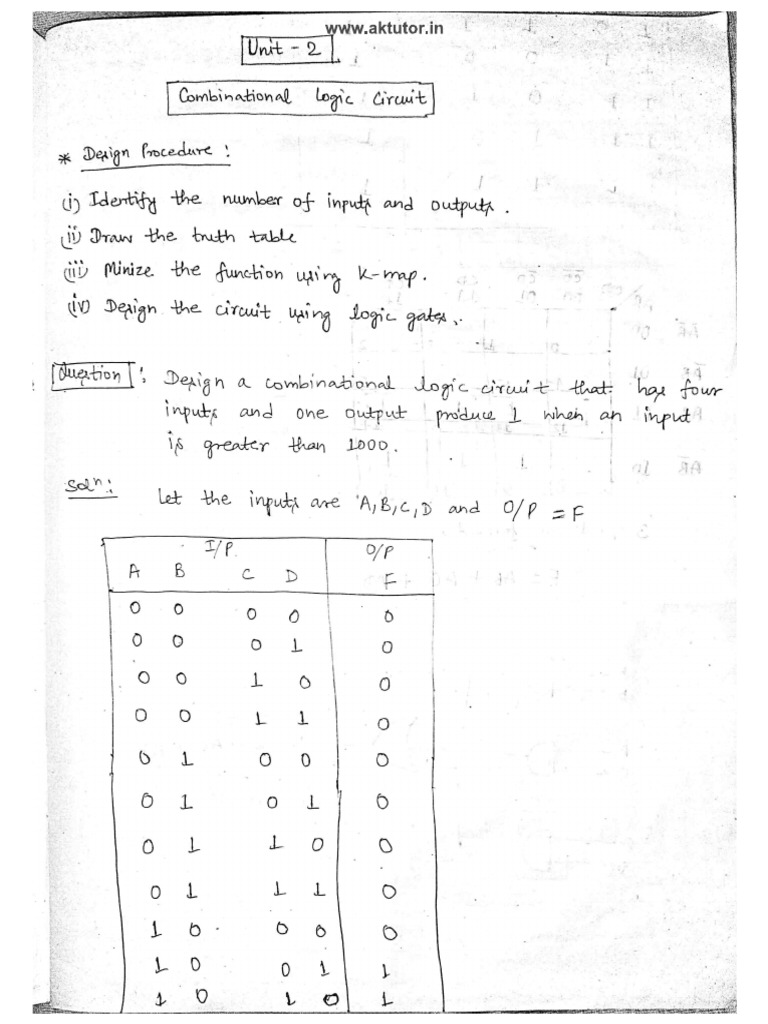 www.aktutor.in
Unit - 2
Combinational Logic Circuit
* Design Procedure :
(i) Identify the number of inputs and outputs.
(ii) Draw the truth table
(iii) Minize the function using K-map.
(iv) Design the circuit using logic gates.
Question : Design a combinational logic circuit that has four
inputs and one output produce 1 when an input
is greater than 1000.
Solⁿ: Let the inputs are A,B,C,D and O/P = F
I/P O/P
A B C D F
0 0 0 0 0
0 0 0 1 0
0 0 1 0 0
0 0 1 1 0
0 1 0 0 0
0 1 0 1 0
0 1 1 0 0
0 1 1 1 0
1 0 0 0 0
1 0 0 1 1
1 0 1 0 1